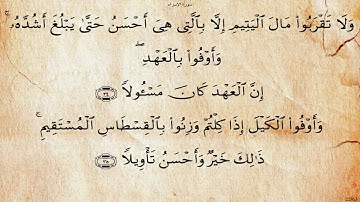 سورة الإسراء
وَلَا تَقْرَبُوا۟ مَالَ ٱلْيَتِيمِ إِلَّا بِٱلَّتِى هِىَ أَحْسَنُ حَتَّىٰ يَبْلُغَ أَشُدَّهُۥ ۚ
وَأَوْفُوا۟ بِٱلْعَهْدِ ۖ
إِنَّ ٱلْعَهْدَ كَانَ مَسْـُٔولًا ﴿٣٤﴾
وَأَوْفُوا۟ ٱلْكَيْلَ إِذَا كِلْتُمْ وَزِنُوا۟ بِٱلْقِسْطَاسِ ٱلْمُسْتَقِيمِ ۚ
ذَٰلِكَ خَيْرٌ وَأَحْسَنُ تَأْوِيلًا ﴿٣٥﴾